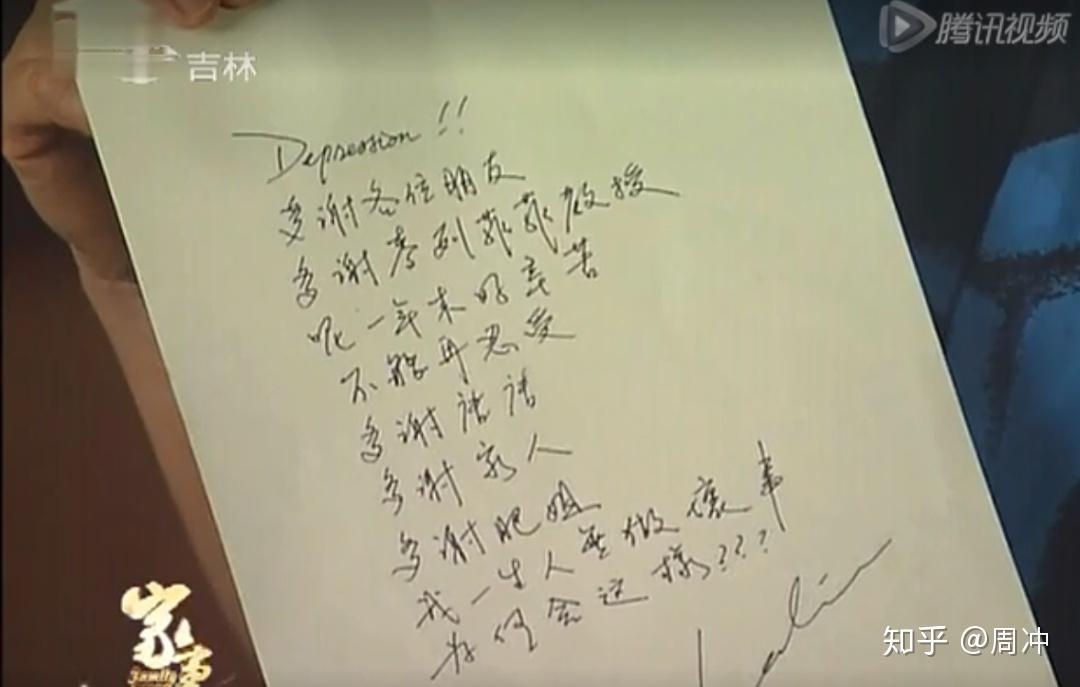 腾讯视频
吉林
Depression !!
多谢各位朋友
多谢麦列菲菲教授
呢一年来好辛苦
不能再忍受
多谢唐唐
多谢家人
多谢肥姐
我一生人無做壞事
为何会这樣???
Leslie
家事
Family
知乎 @周冲